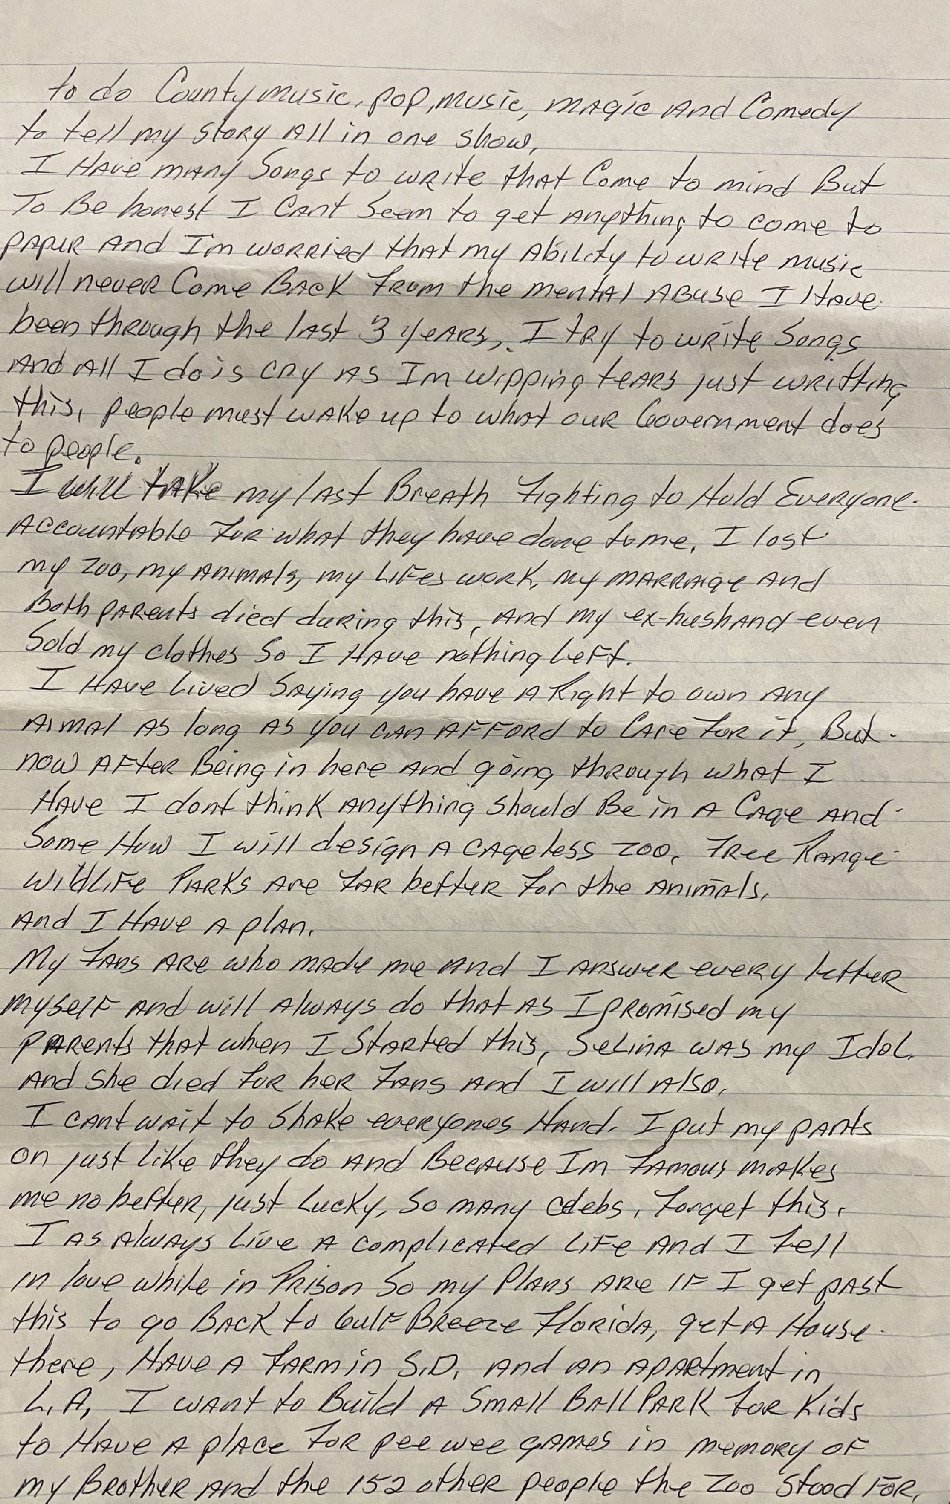 to do County music, pop, music, magic and Comedy
to tell my story all in one show.
I Have many Songs to write that Come to mind But
To Be honest I Cant Seem to get anything to come to
paper and I'm worried that my Ability to write music
will never Come Back from the mental Abuse I Have
been through the last 3 years, I try to write Songs
And All I do is cry as Im wipping tears just writting
this, people must wake up to what our Government does
to people.
I will take my last Breath Fighting to Hold Everyone
Accountable For what they have done to me. I lost
my zoo, my animals, my Lifes work, my marraige and
Both parents died during this, and my ex-husband even
Sold my clothes So I Have nothing Left.
I Have Lived Saying you have a Right to own any
Aimal as long as you can afford to Care For it, But
now after Being in here and going through what I
Have I dont think anything should Be in a Cage and
Some How I will design a cageless zoo. Free Range
Wildlife Parks are far better for the animals.
And I Have a plan.
My Fans are who made me and I answer every letter
myself and will always do that as I promised my
parents that when I Started this, Selina was my Idol.
And she died for her Fans and I will also.
I cant wait to Shake everyones Hand. I put my pants
on just like they do and Because Im Famous makes
me no better, just Lucky, So many celebs, Forget this.
I as always Live a complicated Life and I Fell
in love while in Prison So my Plans are if I get past
this to go Back to Gulf Breeze Florida, get a House
there, Have a Farm in S.D. and an apartment in
L.A, I want to Build a Small Ball Park for Kids
to Have a place For pee wee games in memory of
my Brother and the 152 other people the zoo stood For,